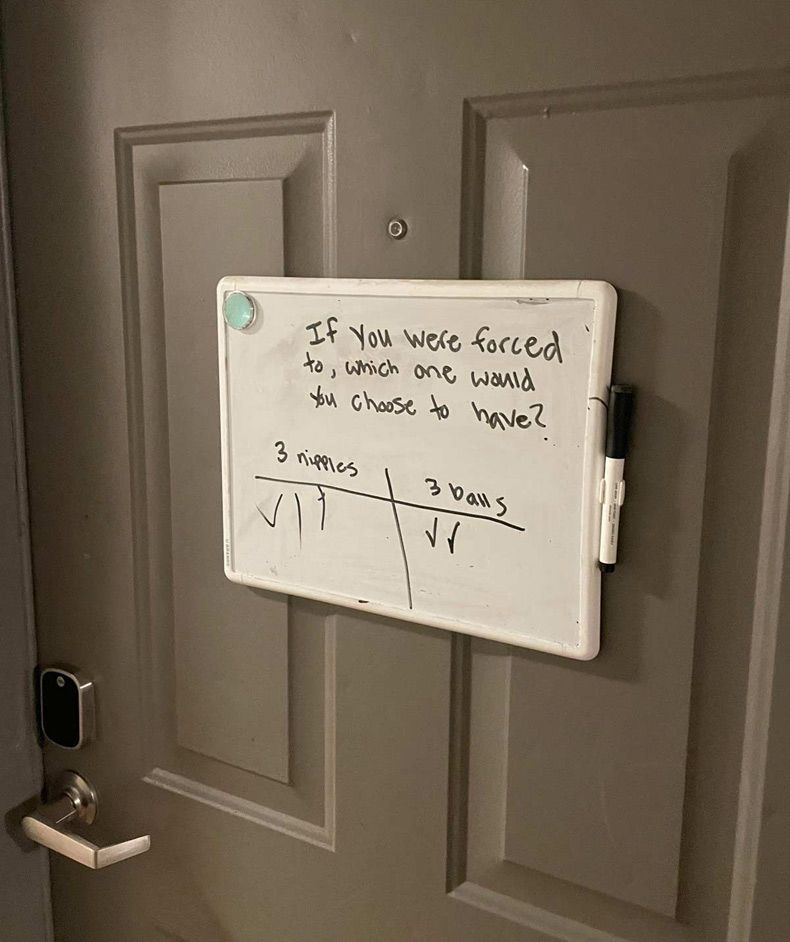 If You were forced
to, which one would
you choose to have?
3 nipples
3 balls